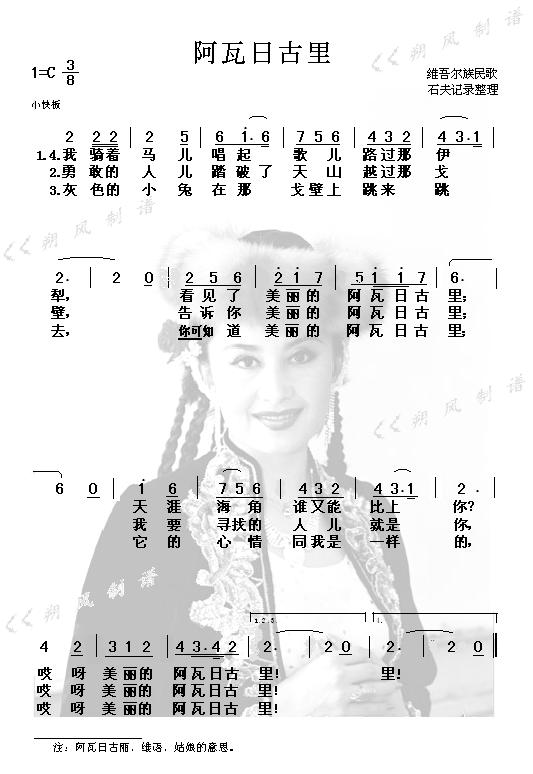 阿瓦日古里
1=C 3/8
维吾尔族民歌
石夫记录整理
小快板
2 2 2 | 2 5 | 6 1·6 | 7 5 6 | 4 3 2 | 4 3·1 |
1.4.我 骑着 马 儿 唱起 歌儿 路过那 伊
2.勇 敢的 人 儿 踏破了 天山 越过那 戈
3.灰 色的 小 兔 在那 戈壁上 跳来 跳
2· | 2 0 | 2 1 7 6 | 2 1 7 | 5 1 1 7 | 6· |
犁, 看见了 美丽的 阿瓦日古 里;
壁, 告诉你 美丽的 阿瓦日古 里;
去, 你可知道 美丽的 阿瓦日古 里;
6 0 | 1 6 | 7 5 6 | 4 3 2 | 4 3·1 | 2· |
天 涯 海角 谁又能 比上 你?
我 要 寻找的 人儿 就是 你,
它 的 心情 同我是 一样 的,
1.2.3.
4 2 | 3 1 2 | 4 3·4 2 | 2· | 2 0 | 2· | 2 0 ‖
哎 呀 美丽的 阿瓦日古 里! 里!
哎 呀 美丽的 阿瓦日古 里!
哎 呀 美丽的 阿瓦日古 里!
注: 阿瓦日古丽, 维语, 姑娘的意思。
朔风制谱
朔风制谱
朔风制谱
朔风制谱